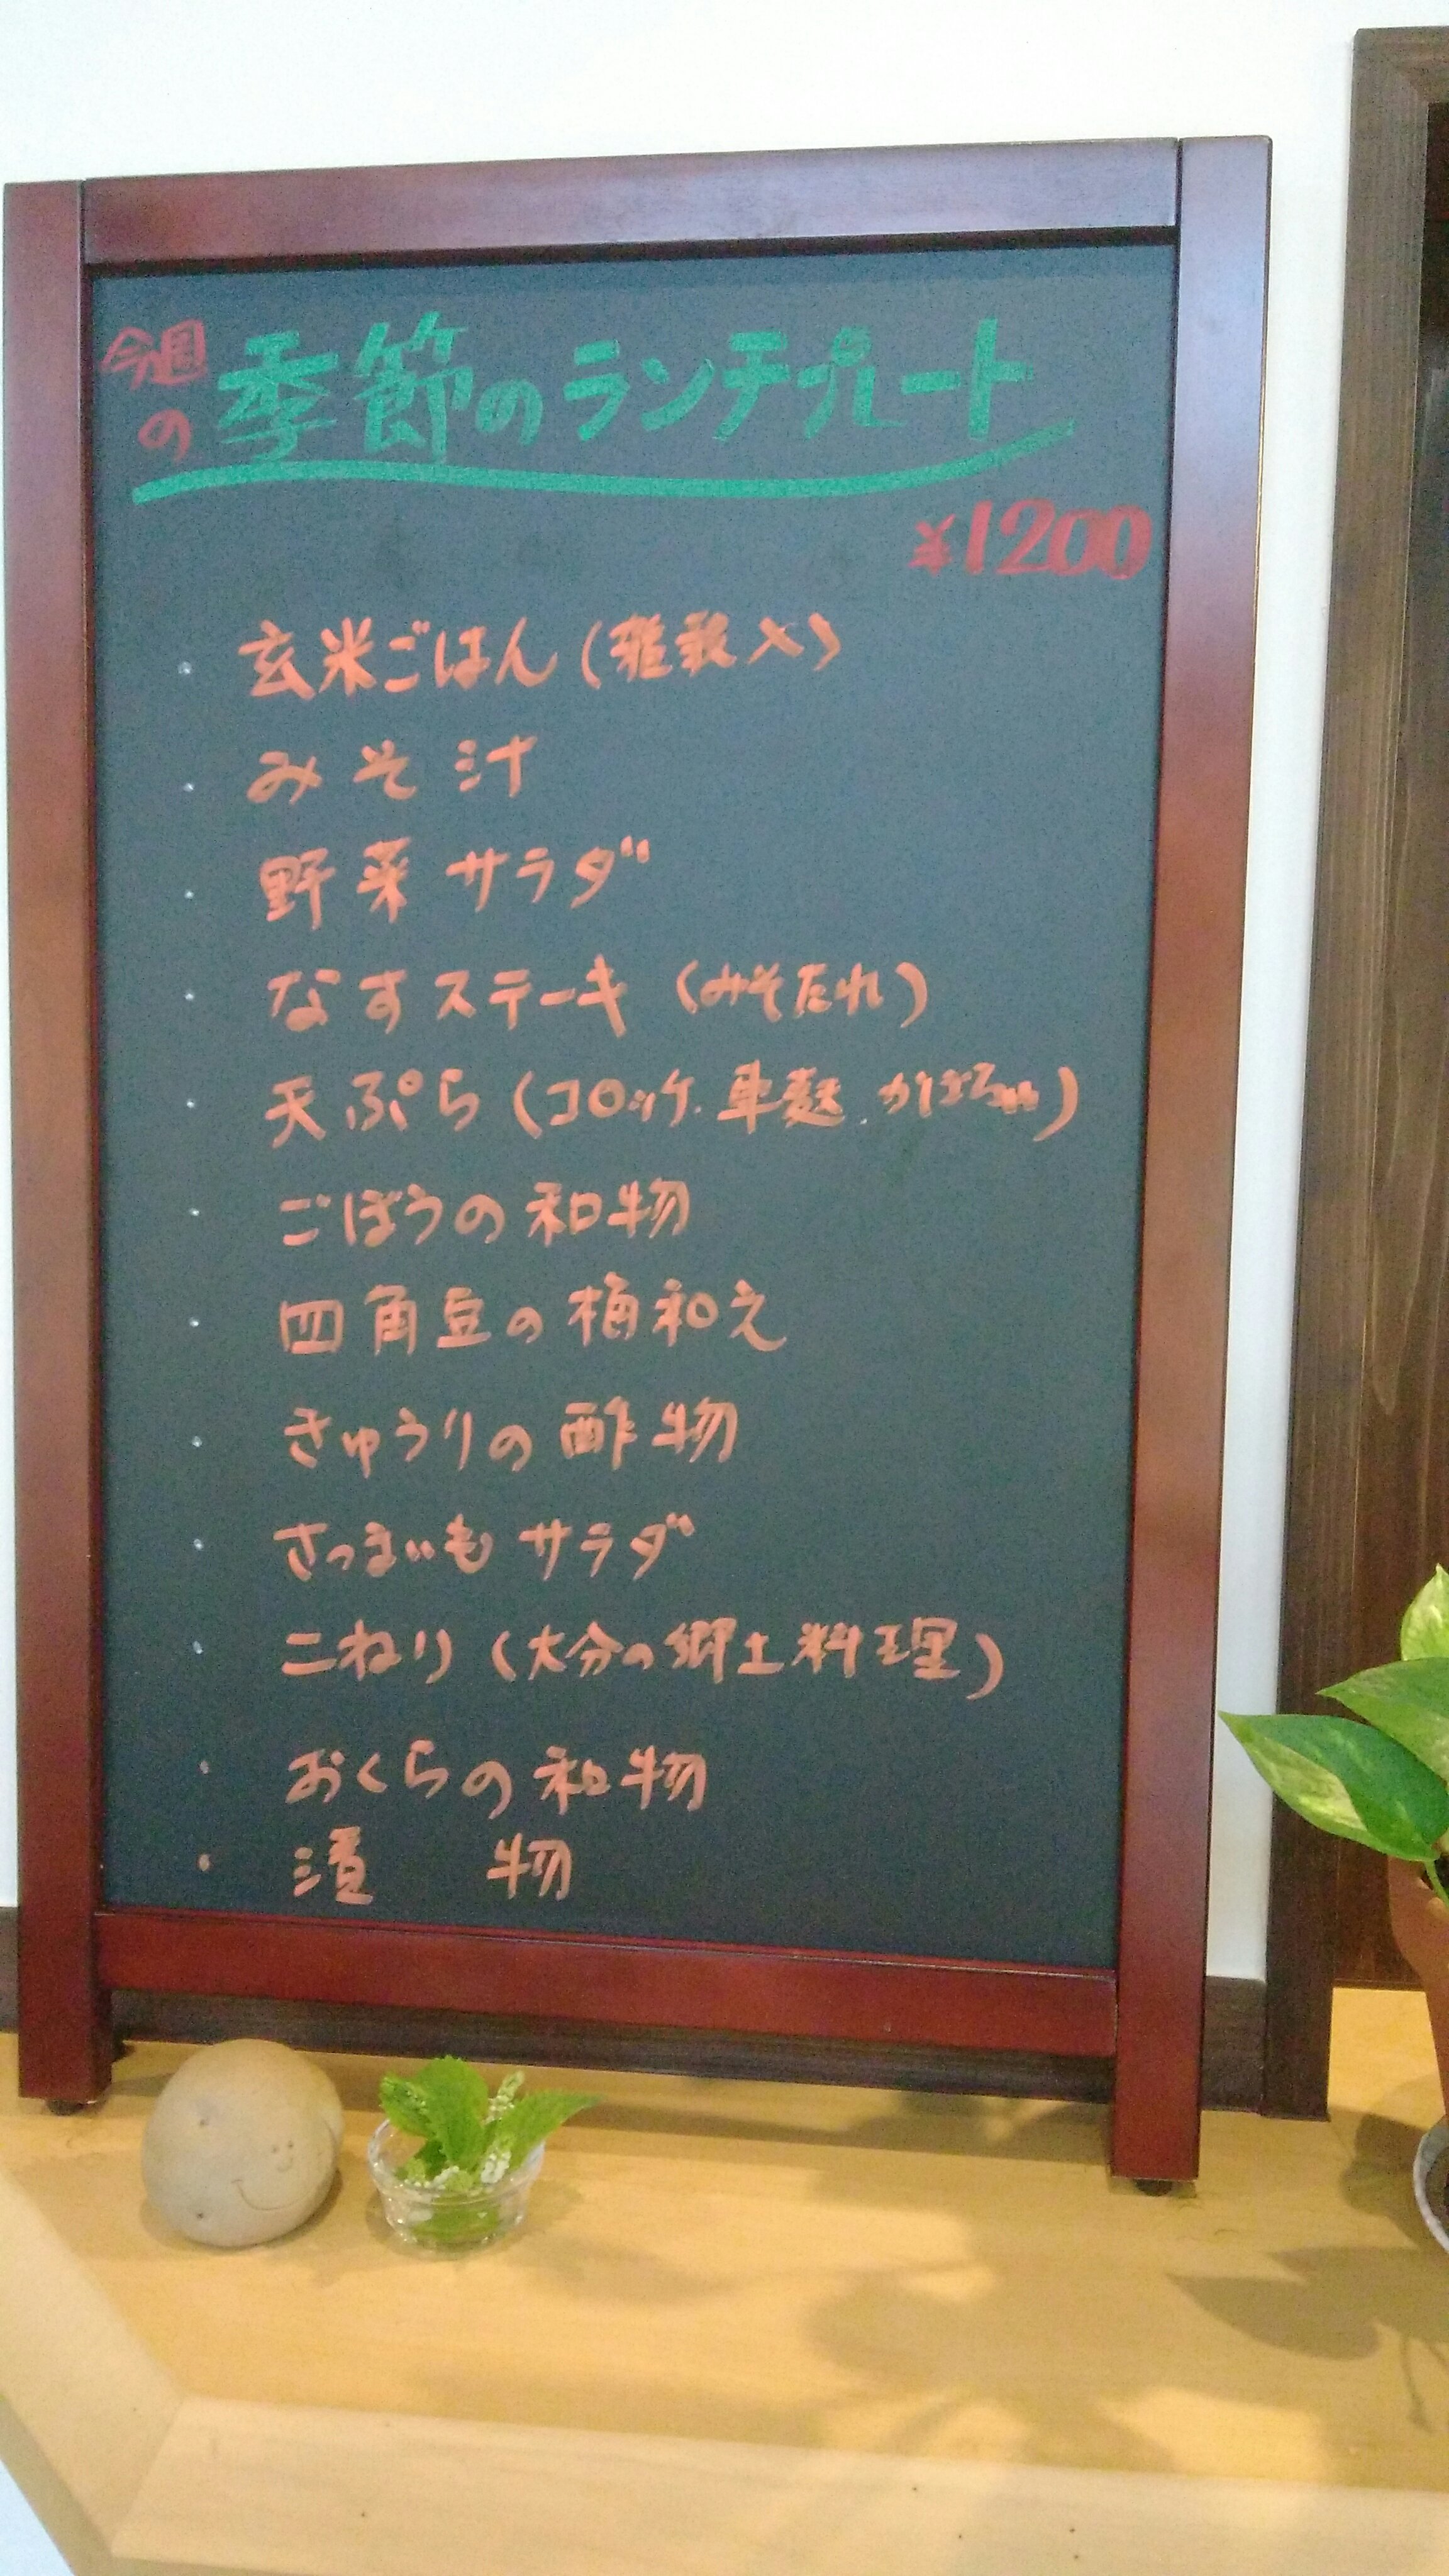 今週の 季節のランチプレート
¥1200
・玄米ごはん(雑穀入)
・みそ汁
・野菜サラダ
・なすステーキ(みそたれ)
・天ぷら(コロッケ.車麩.かぼちゃ)
・ごぼうの和物
・四角豆の梅和え
・きゅうりの酢物
・さつまいもサラダ
・こねり(大分の郷土料理)
・おくらの和物
・漬物